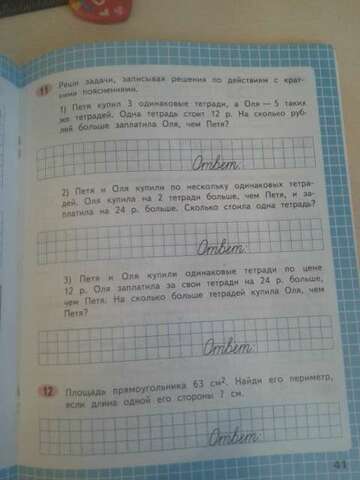 11 Реши задачи, записывая решения по действиям с крат-
кими пояснениями.
1) Петя купил 3 одинаковые тетради, а Оля — 5 таких
же тетрадей. Одна тетрадь стоит 12 р. На сколько руб-
лей больше заплатила Оля, чем Петя?
Ответ:
2) Петя и Оля купили по нескольку одинаковых тетра-
дей. Оля купила на 2 тетради больше, чем Петя, и за-
платила на 24 р. больше. Сколько стоила одна тетрадь?
Ответ:
3) Петя и Оля купили одинаковые тетради по цене
12 р. Оля заплатила за свои тетради на 24 р. больше,
чем Петя. На сколько больше тетрадей купила Оля, чем
Петя?
Ответ:
12 Площадь прямоугольника 63 см². Найди его периметр,
если длина одной его стороны 7 см.
Ответ:
41